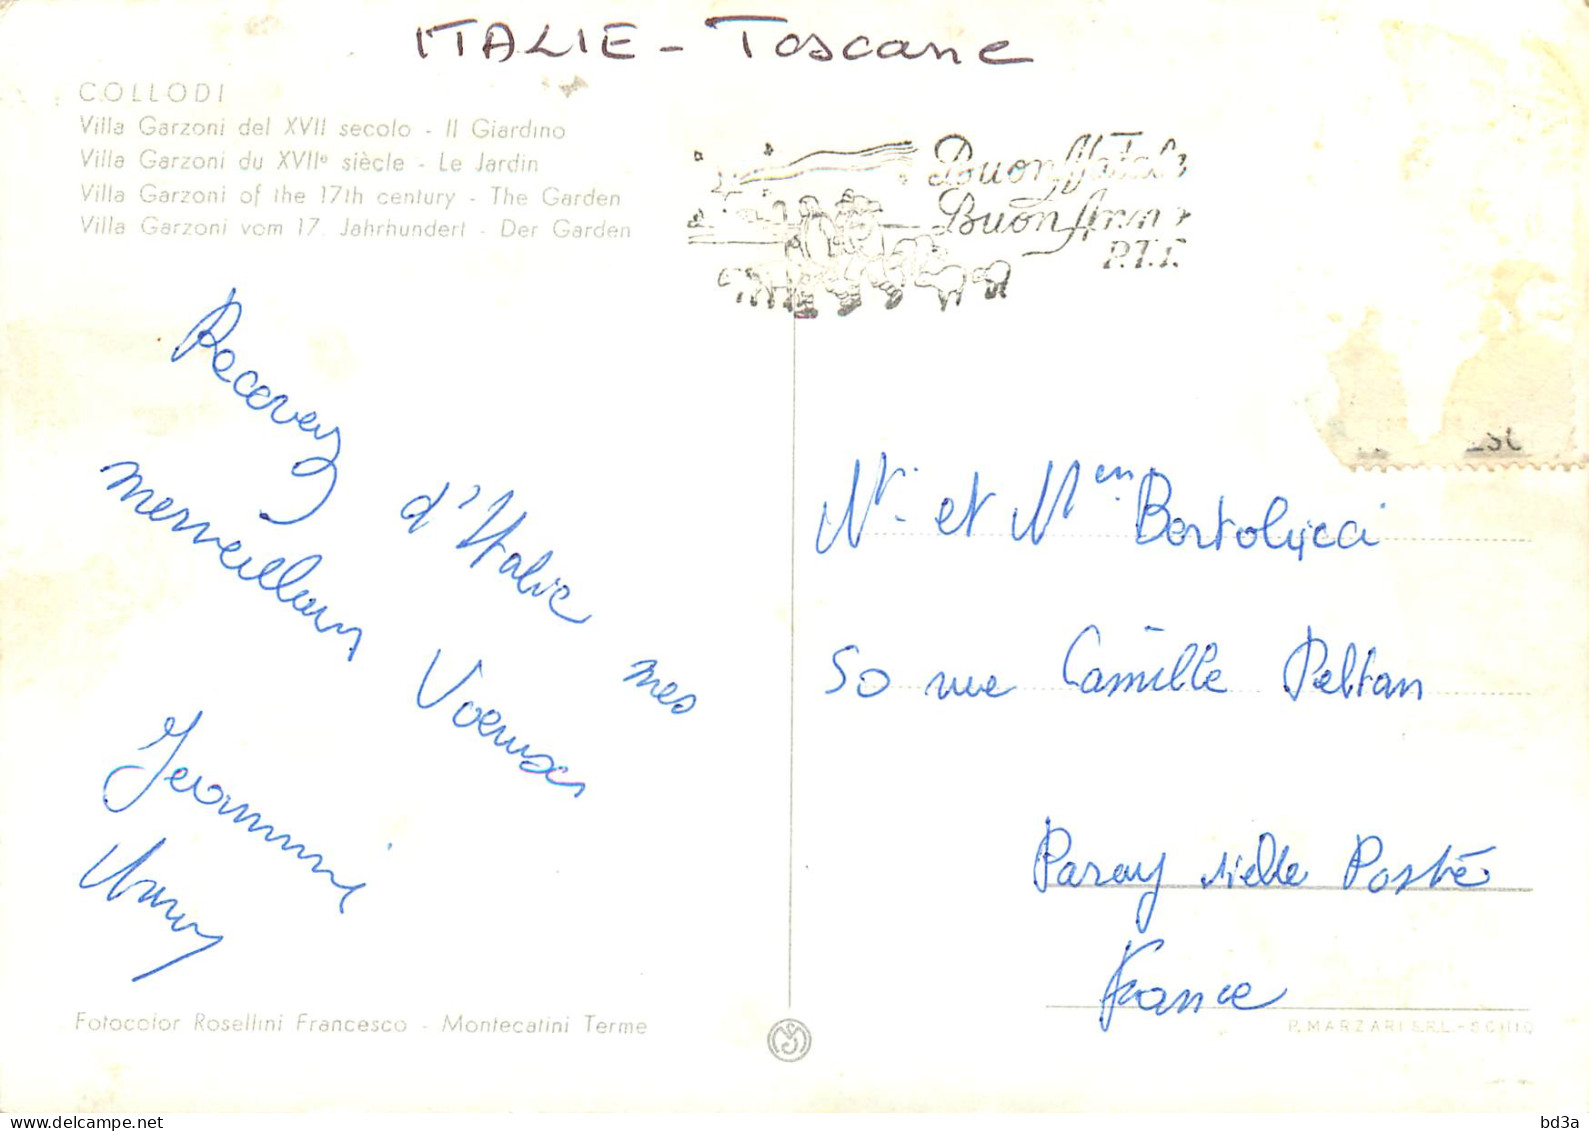 ITALIE - Toscane
COLLODI
Villa Garzoni del XVII secolo - Il Giardino
Villa Garzoni du XVIIe siècle - Le Jardin
Villa Garzoni of the 17th century - The Garden
Villa Garzoni vom 17. Jahrhundert - Der Garden
Buon Natale
Buon Anno
P.T.T.
Recevez d'Italie mes
merveilleux Voeux
Jeannine
Mr. et Mme Bortolucci
50 rue Camille Peltan
Paray vielle Poste
France
Fotocolor Rosellini Francesco - Montecatini Terme
P. MARZARI S.R.L. - SCHIO
bonnesaffaires
www.delcampe.net
bd3a